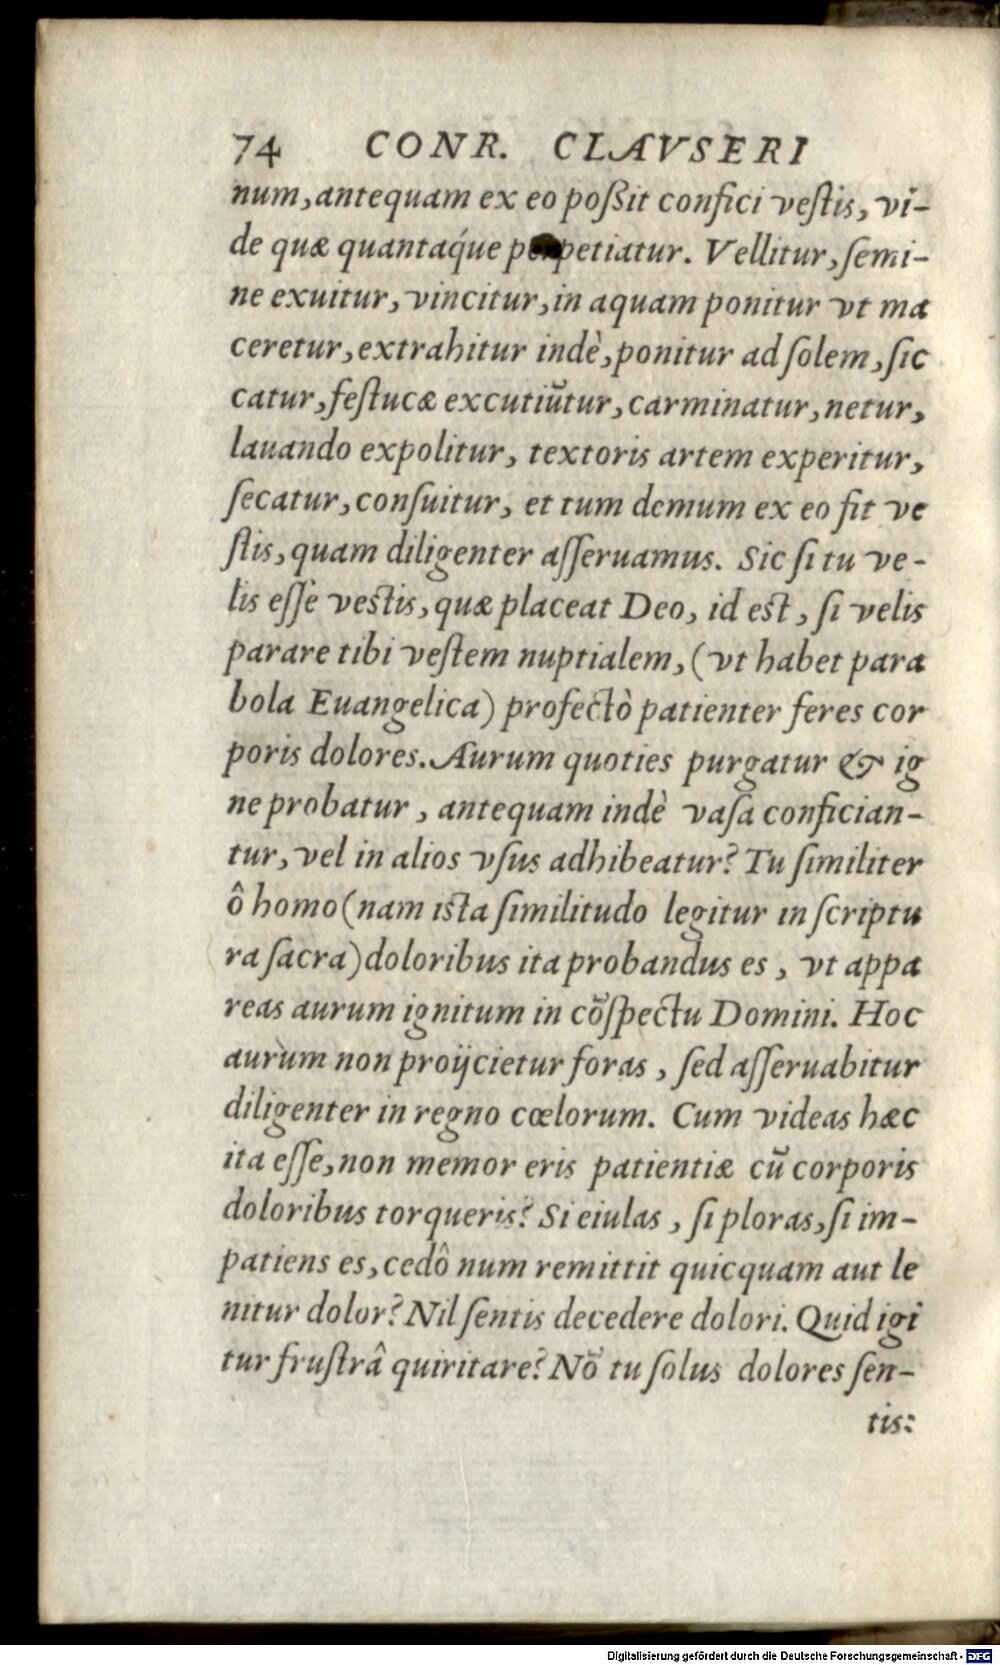 74 CONR. CLAVSERI
num, antequam ex eo poßit confici vestis, vi-
de quæ quantaq́ue perpetiatur. Vellitur, semi-
ne exuitur, vincitur, in aquam ponitur vt ma
ceretur, extrahitur indè, ponitur ad solem, sic
catur, festucæ excutiũtur, carminatur, netur,
lauando expolitur, textoris artem experitur,
secatur, consuitur, et tum demum ex eo fit ve
stis, quam diligenter asseruamus. Sic si tu ve-
lis esse vestis, quæ placeat Deo, id est, si velis
parare tibi vestem nuptialem, (vt habet para
bola Euangelica) profectò patienter feres cor
poris dolores. Aurum quoties purgatur & ig
ne probatur, antequam indè vasa confician-
tur, vel in alios vsus adhibeatur? Tu similiter
ô homo (nam ista similitudo legitur in scriptu
ra sacra) doloribus ita probandus es, vt appa
reas aurum ignitum in cõspectu Domini. Hoc
aurum non proijcietur foras, sed asseruabitur
diligenter in regno cœlorum. Cum videas hæc
ita esse, non memor eris patientiæ cũ corporis
doloribus torqueris? Si eiulas, si ploras, si im-
patiens es, cedô num remittit quicquam aut le
nitur dolor? Nil sentis decedere dolori. Quid igi
tur frustrâ quiritare? Nõ tu solus dolores sen-
tis:
Digitalisierung gefördert durch die Deutsche Forschungsgemeinschaft - DFG